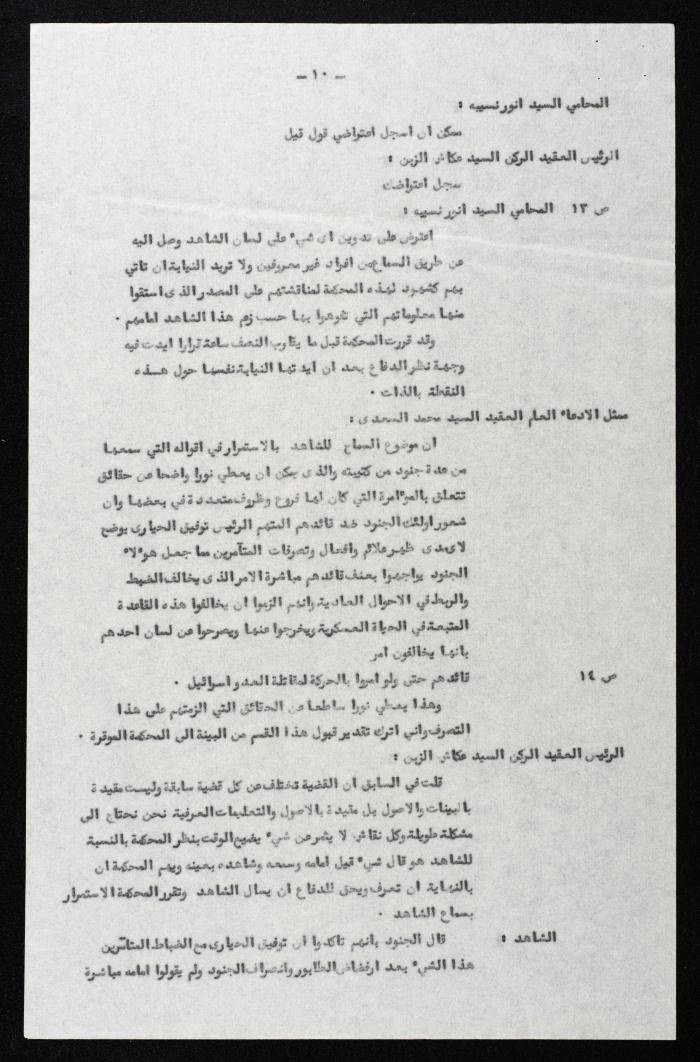 - ١٠ -
المحامي السيد انور نسيبه :
ممكن ان اسجل اعتراضي قول قيل
الرئيس العقيد الركن السيد عكاش الزبن :
سجل اعتراضك
ص ١٣ المحامي السيد انور نسيبه :
اعترض على تدوين اى شيء على لسان الشاهد وصل اليه
عن طريق السماع من افراد غير معروفين ولا تريد النيابة ان تاتي
بهم كشهود لهذه المحكمة لمناقشتهم على المصدر الذى استقوا
منها معلوماتهم التي تفوهوا بها حسب زعم هذا الشاهد امامهم .
وقد قررت المحكمة قبل ما يقارب النصف ساعة قرارا ايدت فيه
وجهة نظر الدفاع بعد ان ايدتها النيابة نفسها حول هذه
النقطة بالذات .
ممثل الادعاء العام العقيد السيد محمد السعدى :
ان موضوع السماح للشاهد بالاستمرار في اقواله التي سمعها
من عدة جنود من كتيبته والذى يمكن ان يعطي نورا واضحا عن حقائق
تتعلق بالمؤامرة التي كان لها فروع وظروف متعددة في بعضها وان
شعور اولئك الجنود ضد قائدهم المتهم الرئيس توفيق الحيارى يوضح
لاى مدى ظهر علائم وافعال وتصرفات المتآمرين مما جعل هؤلاء
الجنود يواجهوا بعنف قائدهم مباشرة الامر الذى يخالف الضبط
والربط في الاحوال العادية وانهم الزموا ان يخالفوا هذه القاعدة
المتبعة في الحياة العسكرية ويخرجوا عنها ويصرحوا عن لسان احدهم
بانها يخالفون امر
ص ١٤ قائدهم حتى ولو امروا بالحركة لمقاتلة العدو اسرائيل .
وهذا يعطي نورا ساطعا عن الحقائق التي الزمتهم على هذا
التصرف واني اترك تقدير قبول هذا القسم من البينة الى المحكمة الموقرة .
الرئيس العقيد الركن السيد عكاش الزبن :
قلت في السابق ان القضية تختلف عن كل قضية سابقة وليست مقيدة
بالبينات والاصول بل مقيدة بالاصول والتعليمات العرفية نحن نحتاج الى
مشكلة طويلة وكل نقاش لا يثمر عن شيء يضيع الوقت بنظر المحكمة بالنسبة
للشاهد هو قال شيء قيل امامه وسمعه وشاهده بعينه ويهم المحكمة ان
بالنهاية ان تعرف ويحق للدفاع ان يسال الشاهد وتقرر المحكمة الاستمرار
بسماع الشاهد .
الشاهد : قال الجنود بانهم تاكدوا ان توفيق الحيارى مع الضباط المتآمرين
هذا الشيء بعد ارفضاض الطابور وانصراف الجنود ولم يقولوا امامه مباشرة